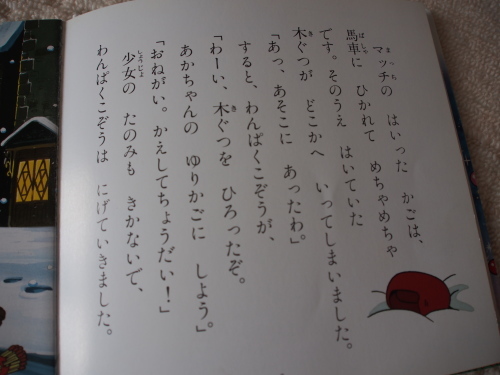 マッチの　はいった　かごは、
馬車に　ひかれて　めちゃめちゃ
です。そのうえ　はいていた
木ぐつが　どこかへ　いってしまいました。
「あっ、あそこに　あったわ。」
すると、わんぱくこぞうが、
「わーい、木ぐつを　ひろったぞ。
あかちゃんの　ゆりかごに　しよう。」
「おねがい。かえしてちょうだい！」
少女の　たのみも　きかないで、
わんぱくこぞうは　にげていきました。